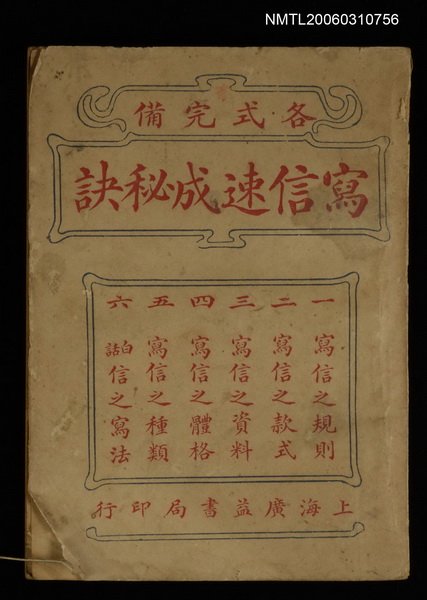 NMTL20060310756
各式完備
寫信速成秘訣
一 寫信之規則
二 寫信之款式
三 寫信之資料
四 寫信之體格
五 寫信之種類
六 白話信之寫法
上海廣益書局印行